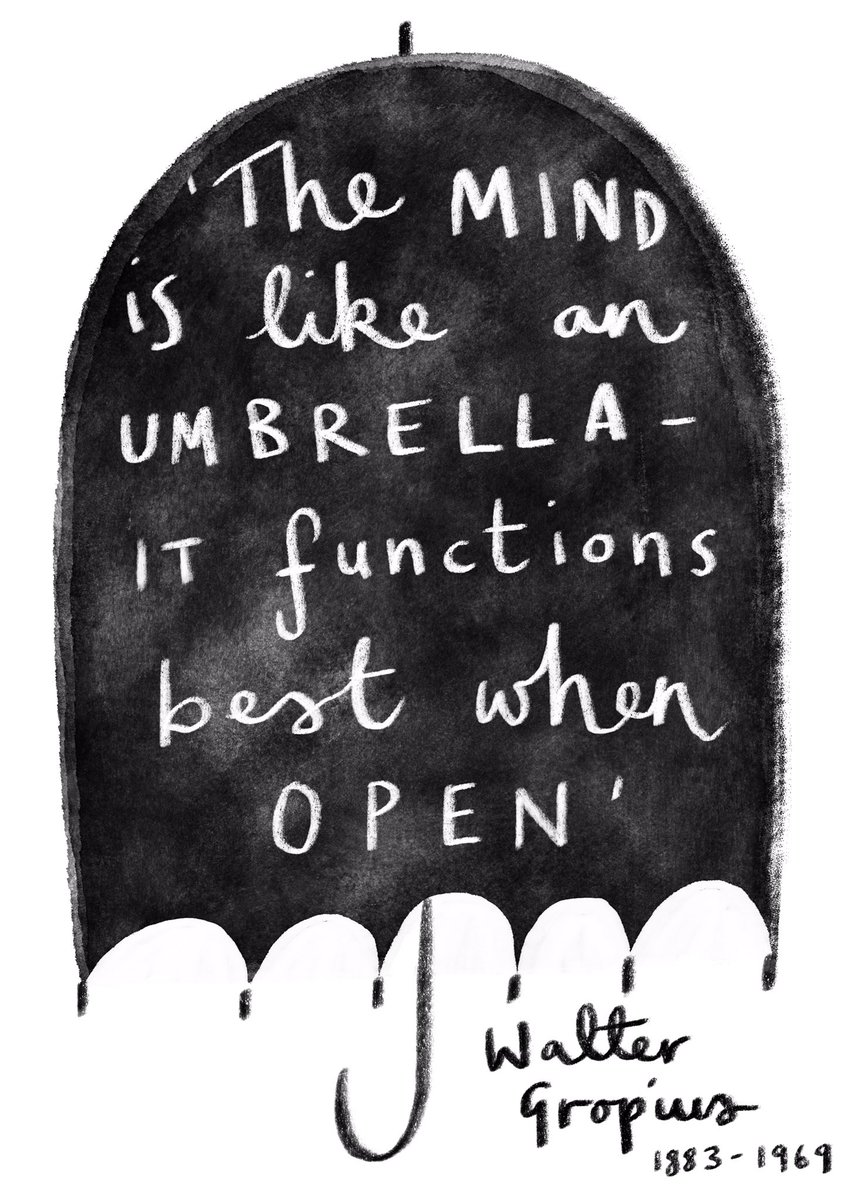 'The MIND
is like an
UMBRELLA -
IT functions
best when
OPEN'
Walter
Gropius
1883 - 1969